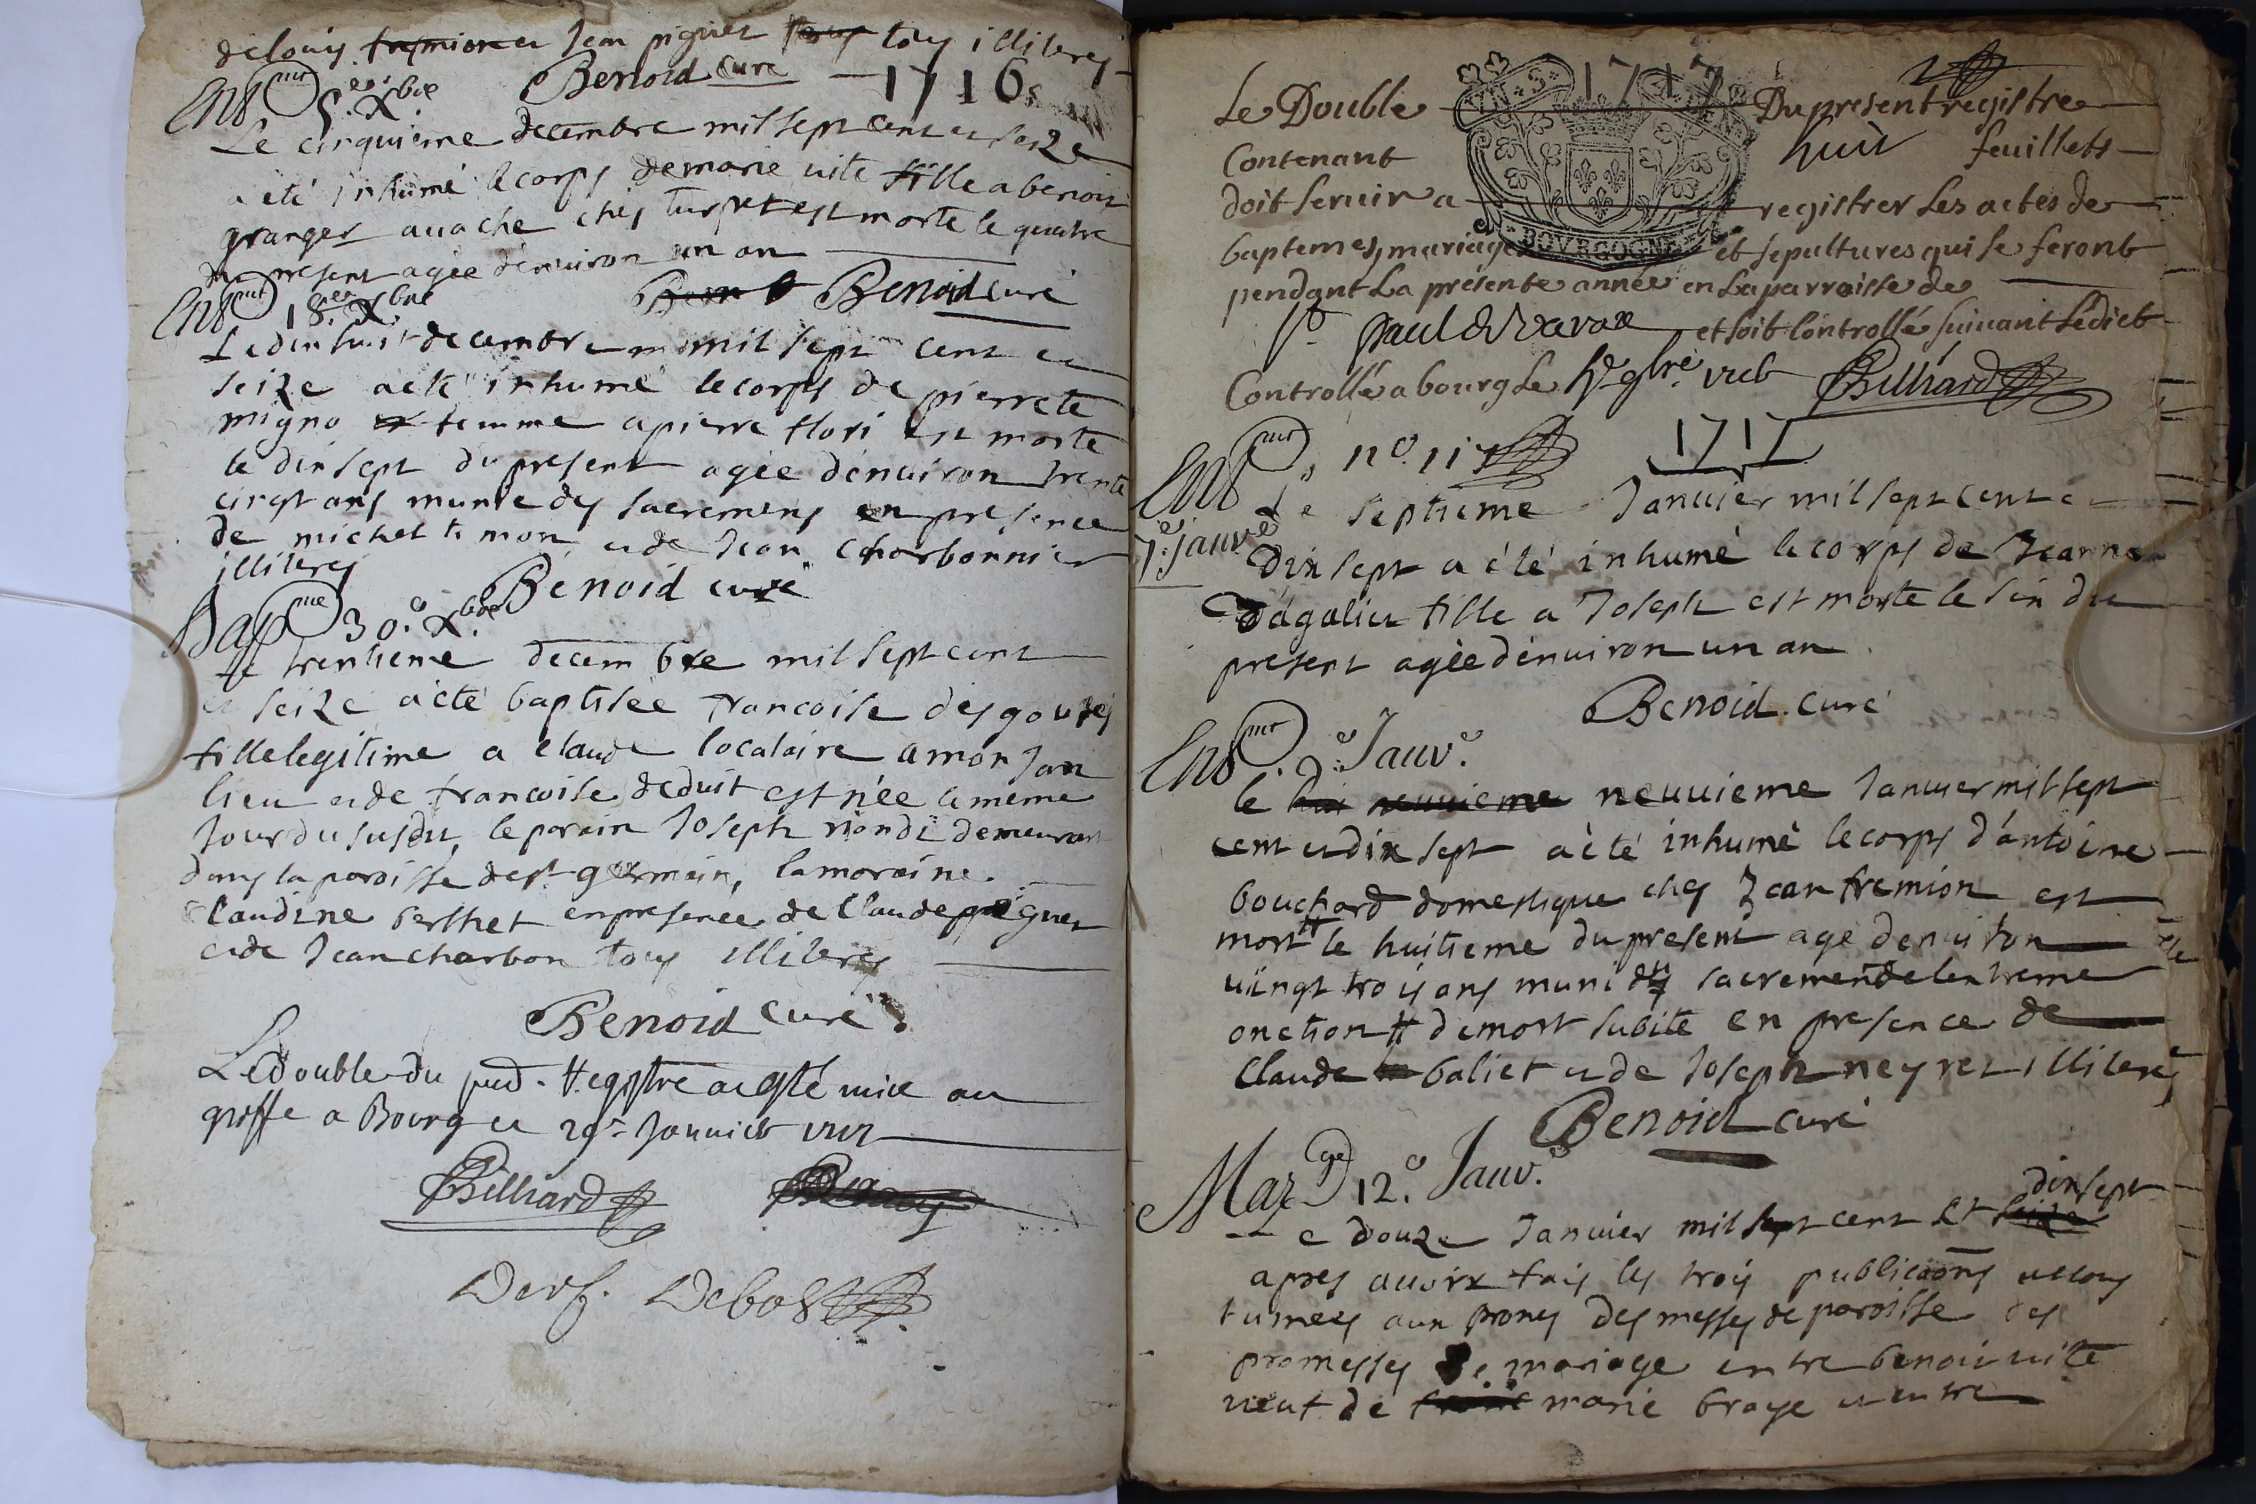 de louis fremion et Jean pignet tous illiterés
Benoid curé 1716
Ent.mnt 5.e Xbre
Le cinquieme decembre mil sept cent et seize
a été inhumé le corps de marie uite fille a benoit
granger auache chés turpet est morte le quatre
du present agée denuiron un an
Benoid curé
Ent.mnt 18.e Xbre
Le dix huit decembre mil sept cent et
seize a eté inhumé le corps de pierrete
migno femme a pierre flori est morte
le dix sept du present agée denuiron trente
cinqt ans munie des sacremens en presence
de michel timon et de Jean charbonnier
illiterés
Benoid curé
Bap.me 30.e Xbre
le trentieme decembre mil sept cent
et seize a été baptisée francoise des goutes
fille legitime a claude locataire a mon Jan
lieu et de francoise deduit est née le méme
Jour du susdit, le parain Joseph riondi demeurant
dans la paroisse de st germain, la moraine
Claudine berthet en presence de Claude pignet
et de Jean charbon tous illiterés
Benoid curé
Le double du pnt. Registre a esté mis au
greffe a Bourg ce 29e Januier
Billiard
Derf. Debost
1717
Le Double Du present registre
Contenant huit feuillets
doit seruir a registrer les actes de
baptemes, mariages et sepultures qui se feront
BOVRGOGNE
pendant La présente année en La parroisse de
St paul de varax et soit Controllé suiuant Lédict
Controllé a bourg Le 9bre Billiard
1717
Ent.mnt
7.e Janv.er
Le septieme Januier mil sept cent et
dix sept a été inhumé le corps de Jeanne
dagalier fille a Joseph est morte le six du
present agée denuiron un an
Benoid curé
Ent.mnt 9.e Janv.e
le neuuieme Januier mil sept
cent et dix sept a été inhumé le corps d'antoine
bouchard domestique chés Jean fremion est
mort le huitieme du present agé denuiron
uingt trois ans muni du sacrement de lextreme
onction # de mort subite en presence de
Claude baliet et de Joseph neyret illiterés
Benoid curé
Mar.ge 12.e Janv.e
Le douze Januier mil sept cent et dix sept
apres auoir fais les trois publications accous
tumées aux prones des messes de paroisse des
promesses de mariage entre benoit uite
ueuf de marie broye et entre